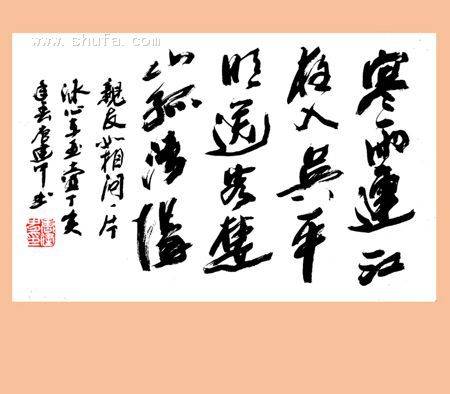 www.shufa.com
寒雨連江
夜入吴平
明送客楚
山孤洛陽
親友如相问一片
冰心在玉壶丁亥
年春唐建书